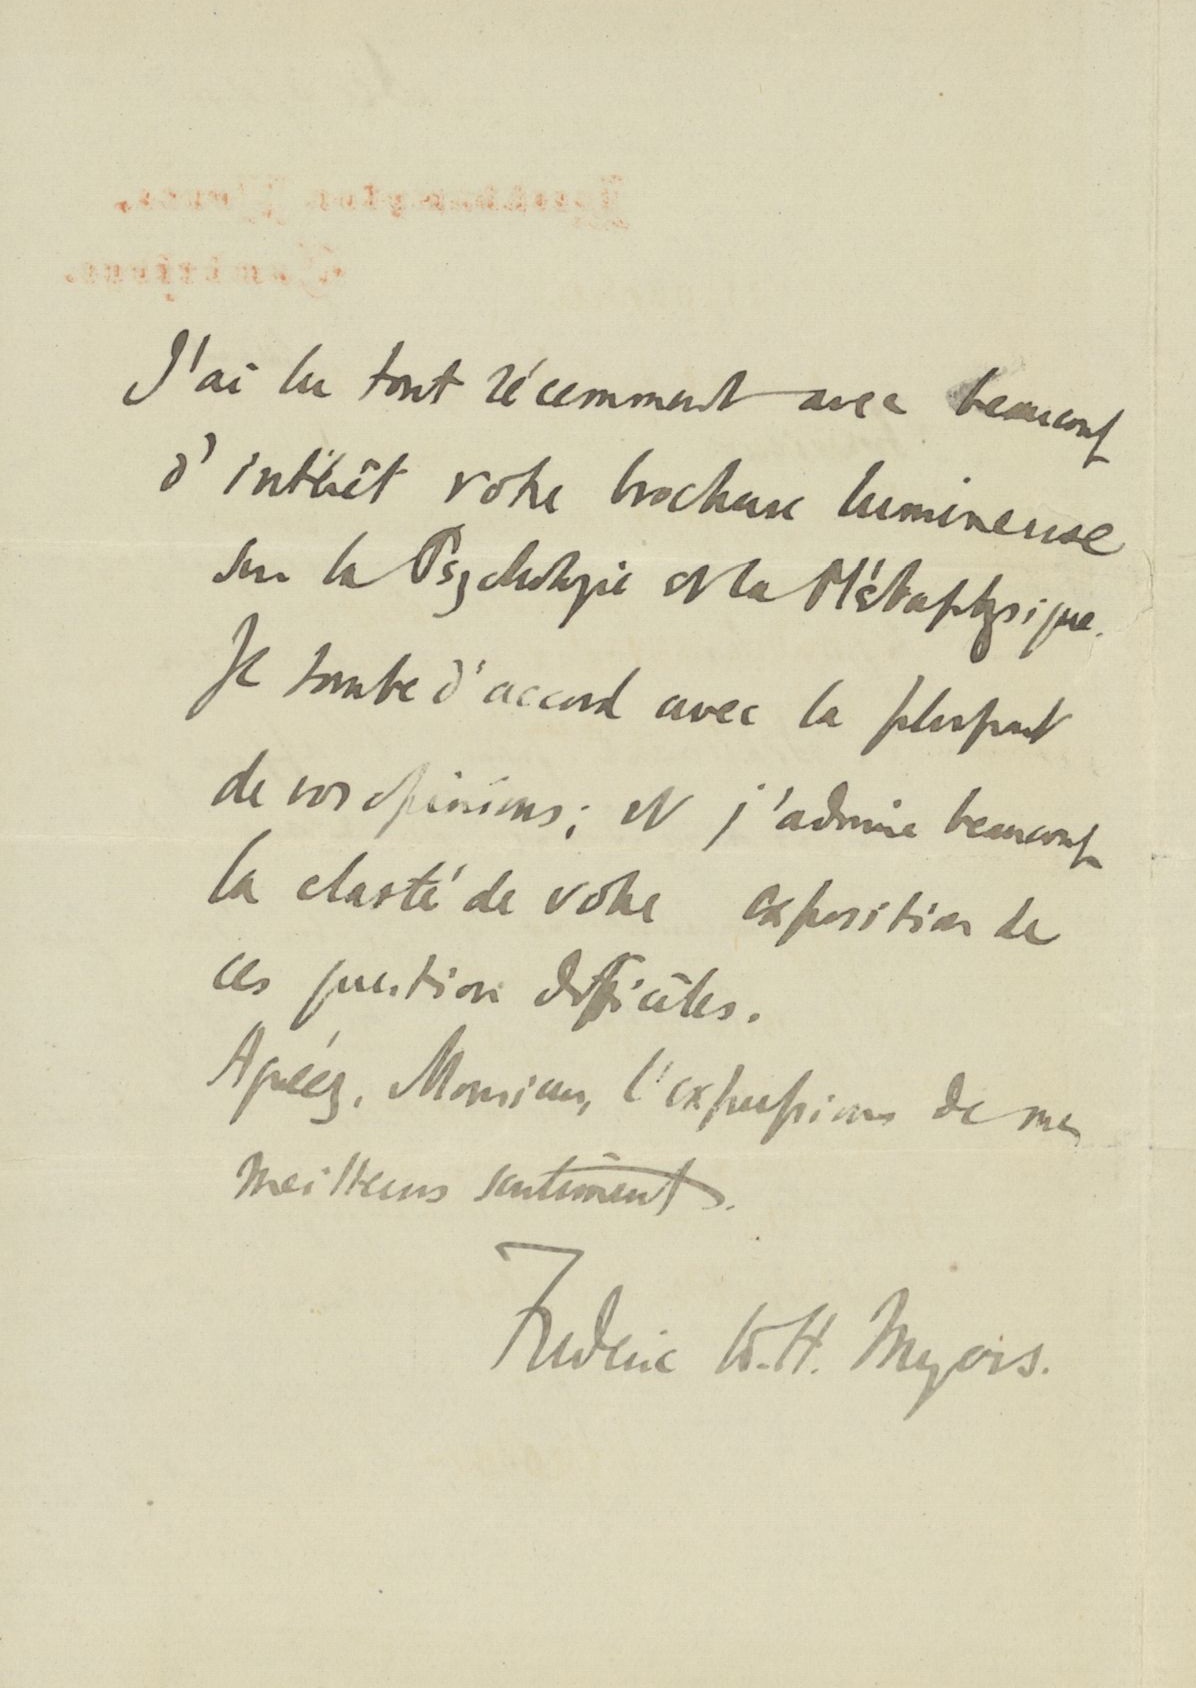 J'ai lu tout récemment avec beaucoup
d'intérêt votre brochure lumineuse
sur la Psychologie et la Métaphysique.
Je tombe d'accord avec la pluspart
de vos opinions; et j'admire beaucoup
la clarté de votre exposition de
ces question difficiles.
Agréez, Monsieur, l'expressions de mes
meilleurs sentiments.
Frederic W. H. Myers.